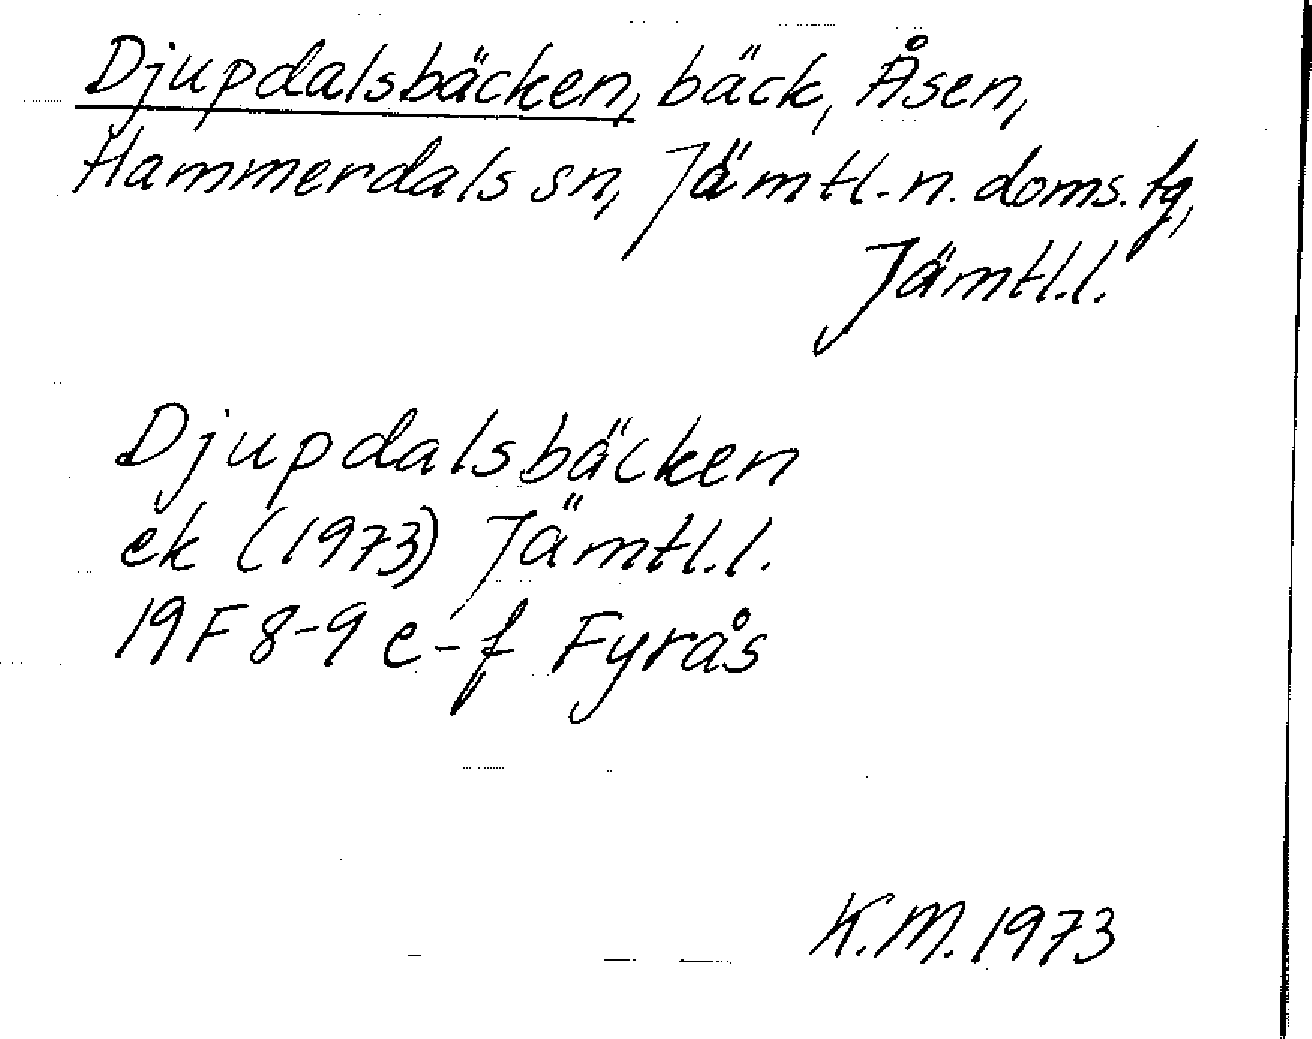 Djupdalsbäcken, bäck, Åsen,
Hammerdals sn, Jämtl. n. doms. tg,
Jämtl.l.
Djupdalsbäcken
ek (1973) Jämtl.l.
19F 8-9 e-f Fyrås
K.M. 1973